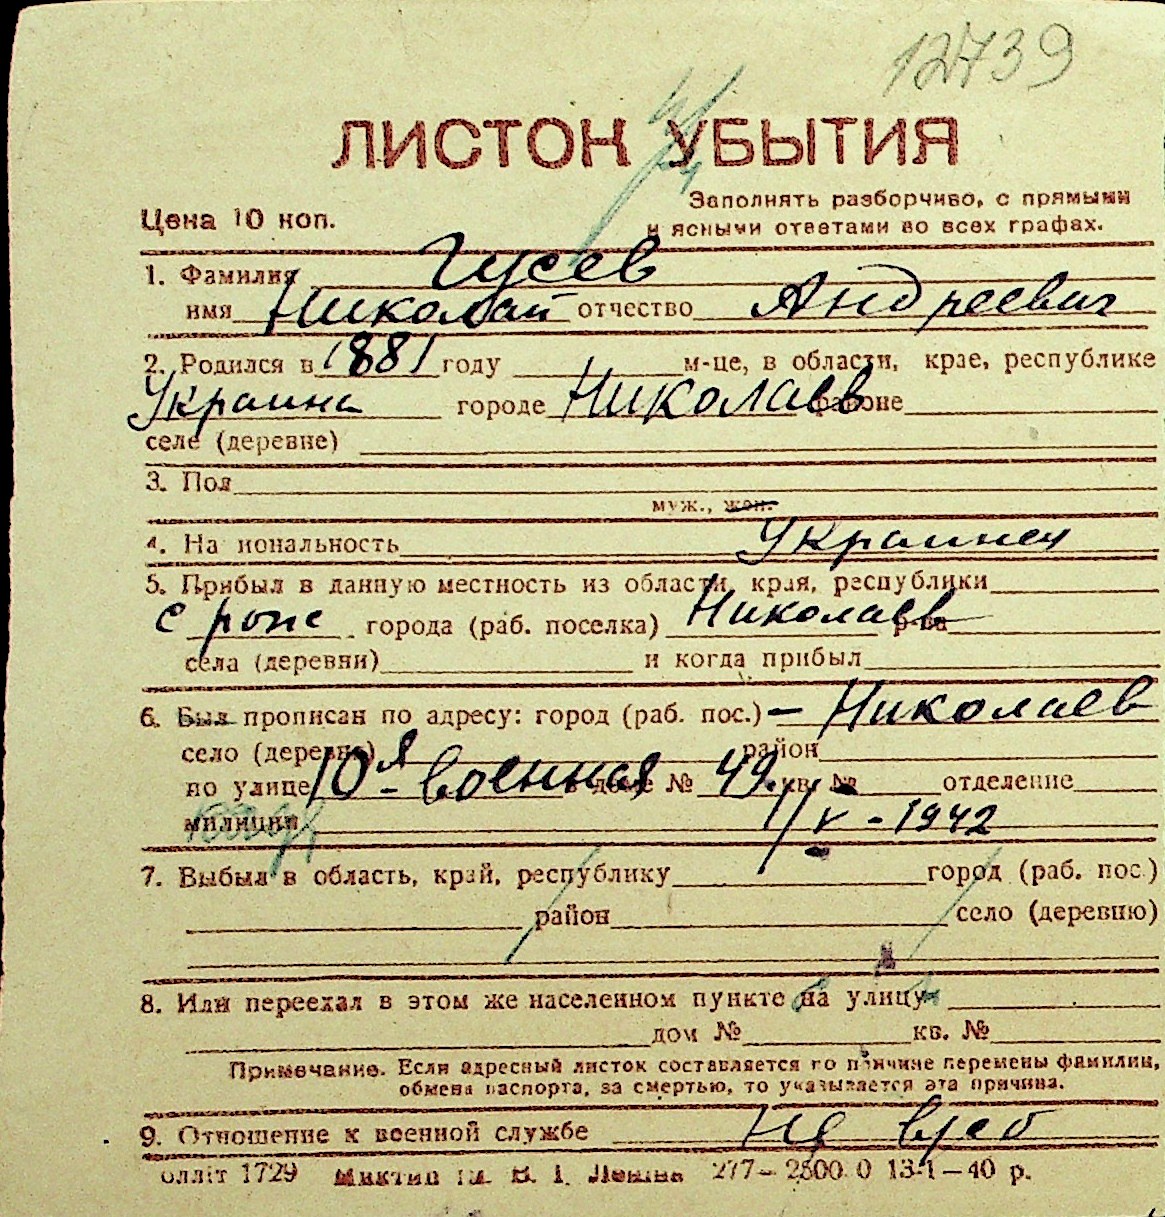 12739
ЛИСТОК УБЫТИЯ
Цена 10 коп.
Заполнять разборчиво, с прямыми
и ясными ответами во всех графах.
1. Фамилия Гусев
имя Николай отчество Андреевич
2. Родился в 1881 году м-це, в области, крае, республике
Украина городе Николаев районе
селе (деревне)
3. Пол
муж., жен.
4. На иональность Украинец
5. Прибыл в данную местность из области, края, республики
с рожс города (раб. поселка) Николаев р-на
села (деревни) и когда прибыл
6. Был прописан по адресу: город (раб. пос.) – Николаев
село (деревне) район
по улице 10я - военная доме № 49. кв. № отделение
милиции 1/V - 1942
7. Выбыл в область, край, республику город (раб. пос.)
район село (деревню)
8. Или переехал в этом же населенном пункте на улицу
дом № кв. №
Примечание. Если адресный листок составляется по причине перемены фамилии,
обмена паспорта, за смертью, то указывается эта причина.
9. Отношение к военной службе
обллiт 1729 277—2500 0 13-1—40 р.